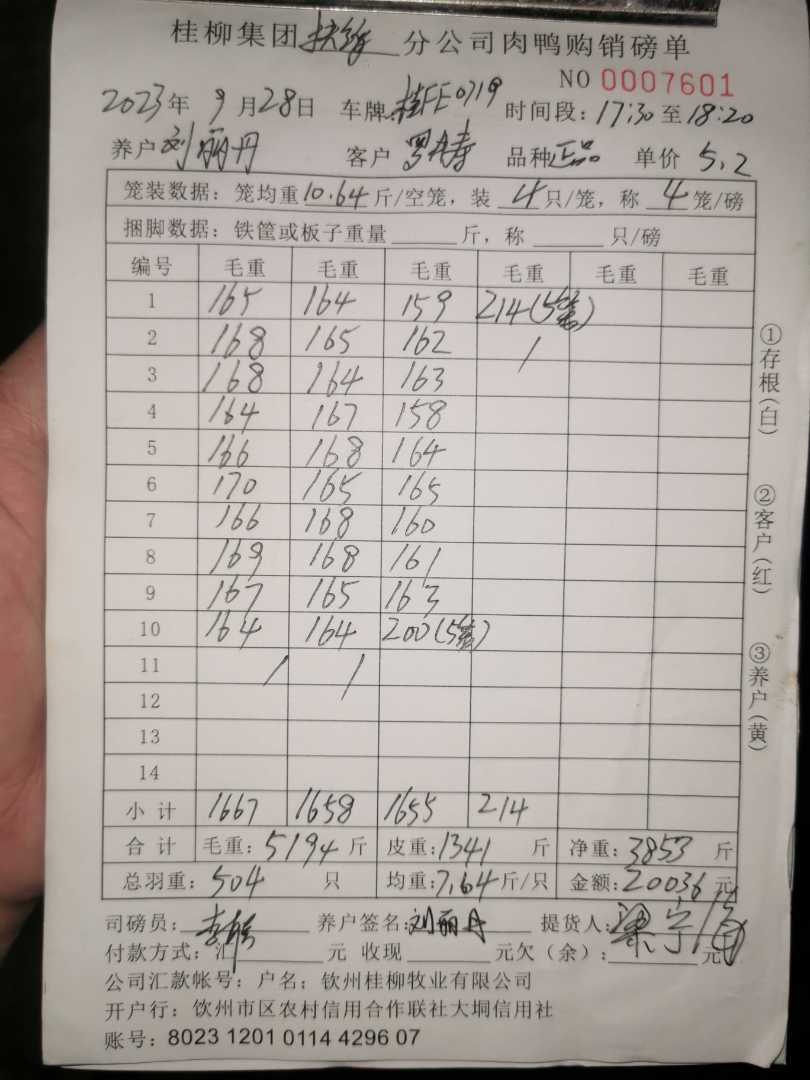 桂柳集团扶绥分公司肉鸭购销磅单
NO 0007601
2023年9月28日 车牌:桂FE0719 时间段:17:30至18:20
养户刘丽丹 客户 品种正品 单价 5.2
笼装数据: 笼均重10.64斤/空笼, 装4只/笼, 称4笼/磅
捆脚数据: 铁筐或板子重量 斤, 称 只/磅
编号 毛重 毛重 毛重 毛重 毛重 毛重
1 165 164 159 214(5笼)
2 168 165 162 /
3 168 164 163
4 164 167 158
5 166 168 164
6 170 165 165
7 166 168 160
8 169 168 161
9 167 165 163
10 164 164 200(5笼)
11 / /
12
13
14
小计 1667 1658 1655 214
合计 毛重:5194斤 皮重:1341斤 净重:3853斤
总羽重:504只 均重:7.64斤/只 金额:20036元
司磅员: 养户签名:刘丽丹 提货人:
付款方式:汇 元 收现 元欠(余): 元
公司汇款帐号: 户名; 钦州桂柳牧业有限公司
开户行: 钦州市区农村信用合作联社大垌信用社
账号: 8023 1201 0114 4296 07
①存根(白)
②客户(红)
③养户(黄)